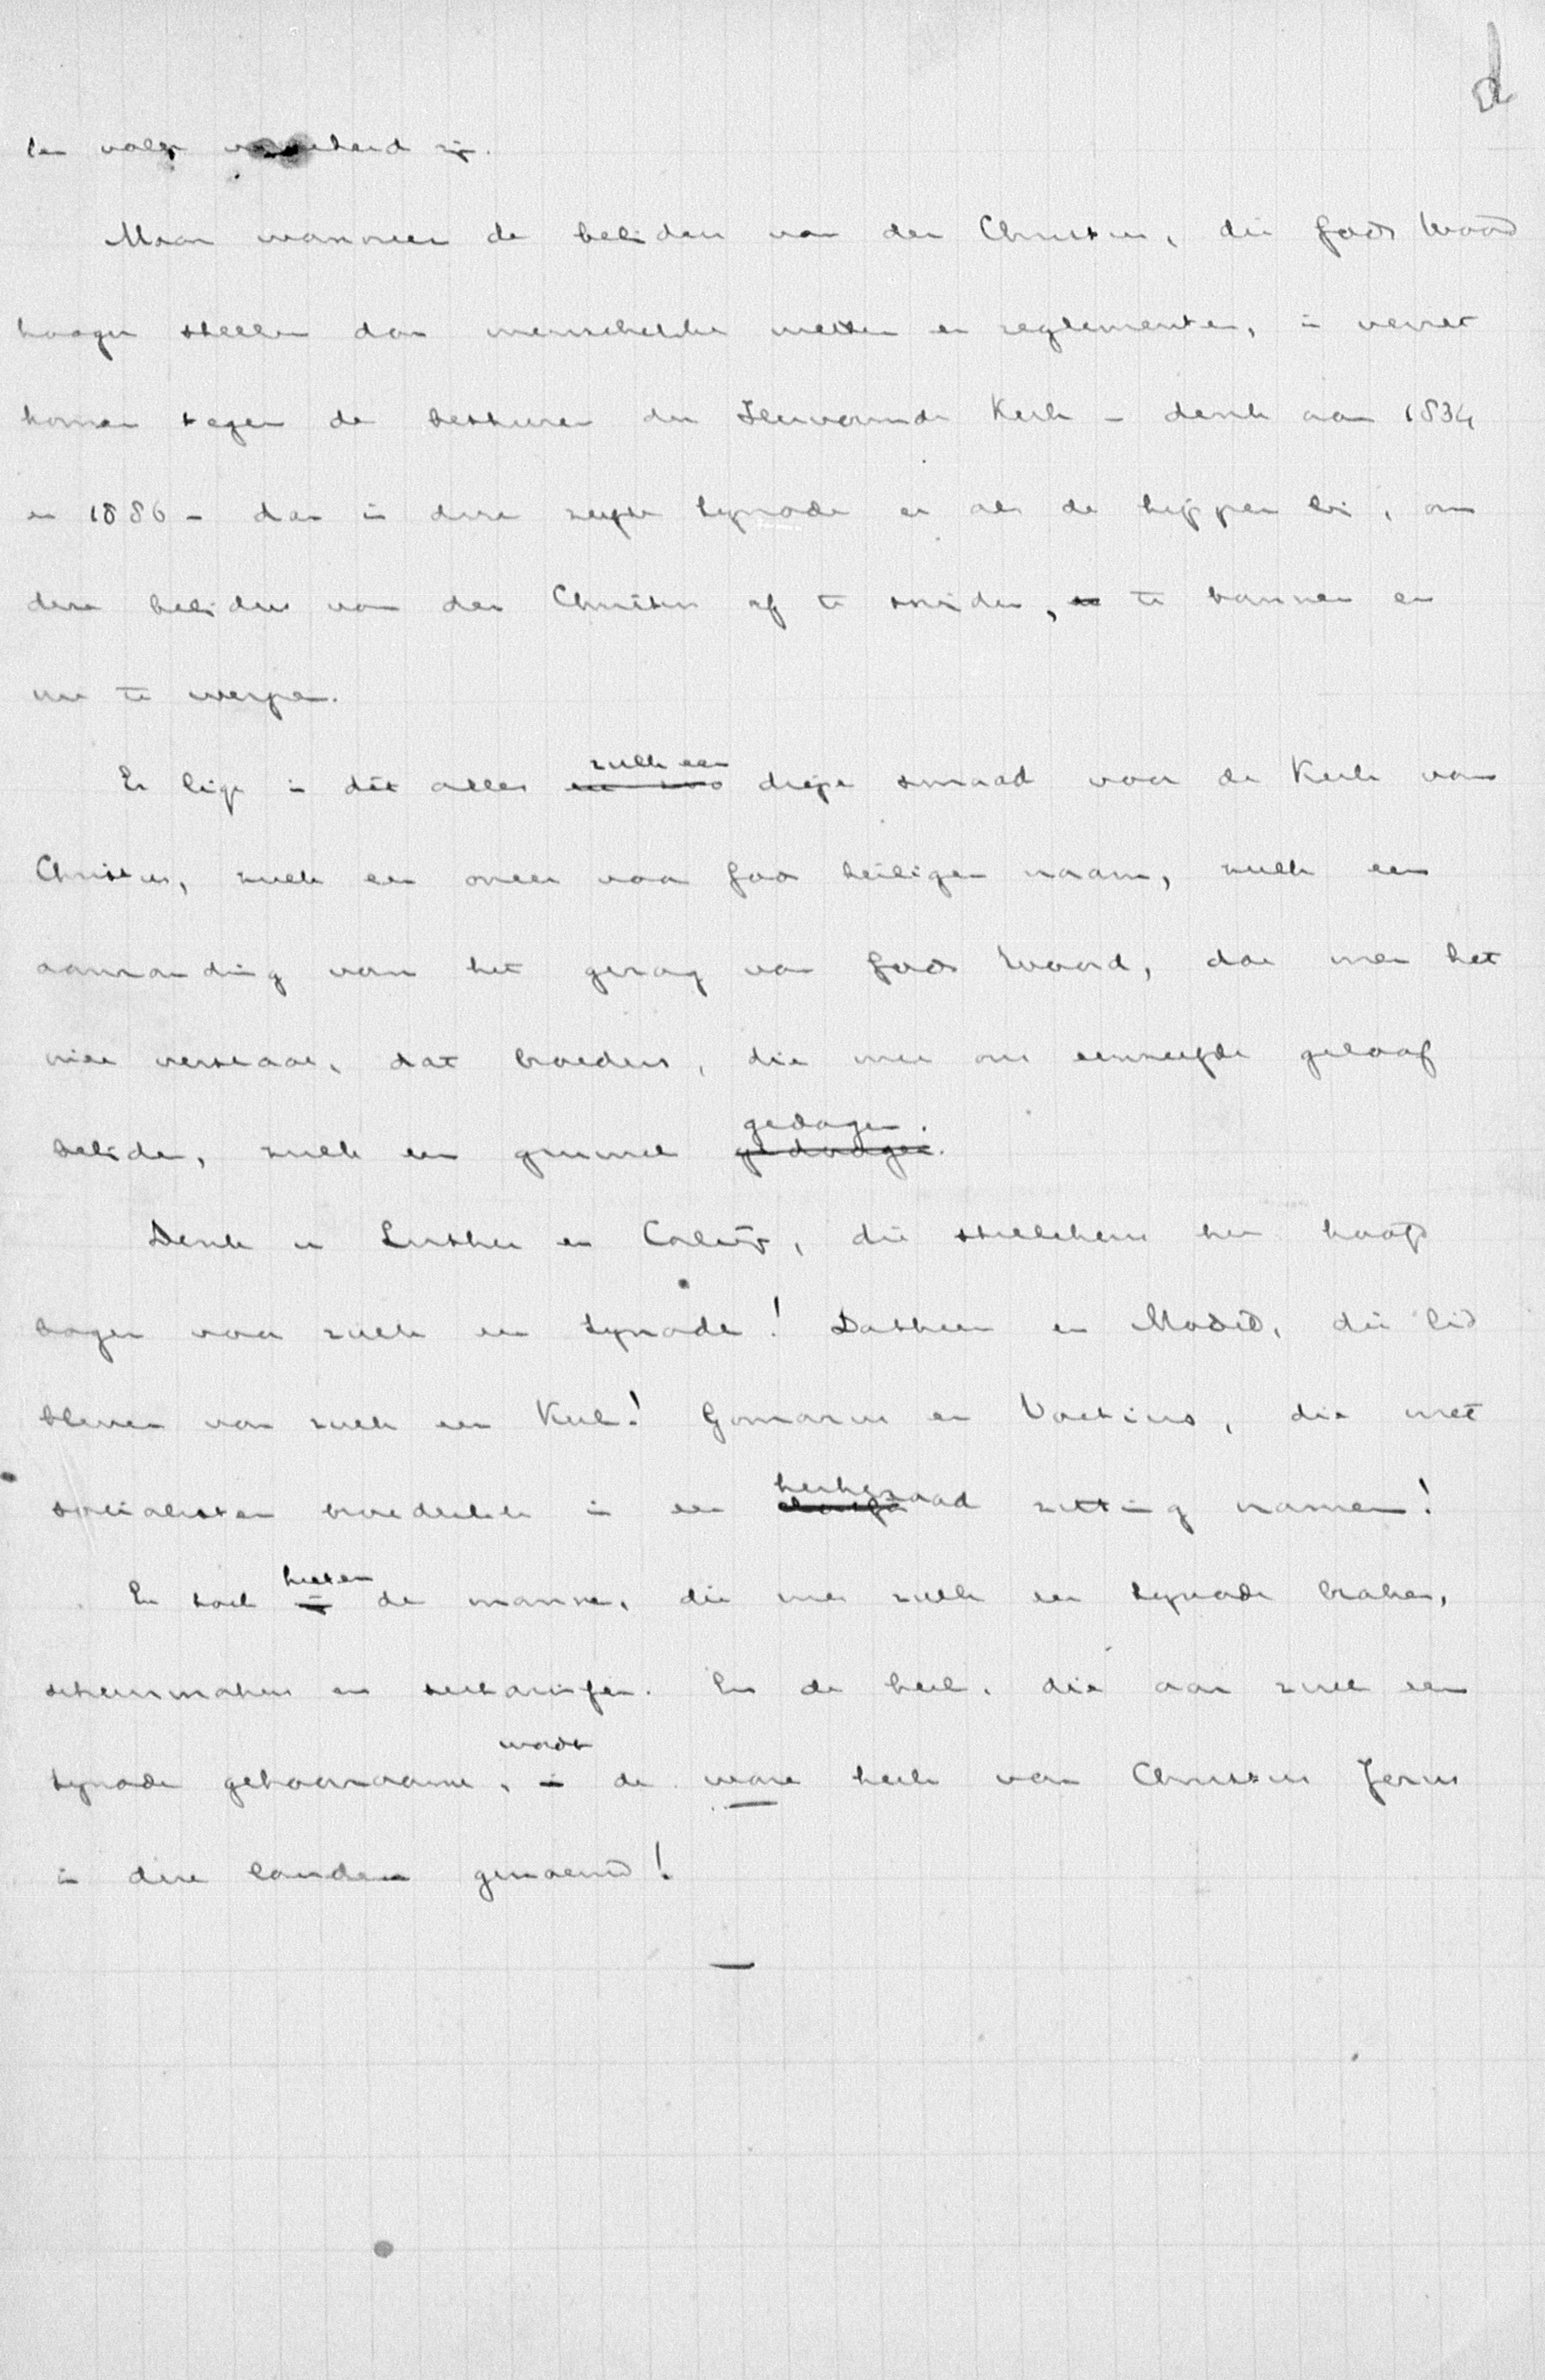 d
ten volle verzekerd zijn.
Maar wanneer de belijders van den Christus, die Gods Woord
hooger stellen dan menschelijke wetten en reglementen, in verzet
komen tegen de besturen der Hervormde Kerk – denk aan 1834
en 1886 – dan is deze zelfde Synode er als de kippen bij, om
deze belijders van den Christus af te snijden, te bannen en
uit te werpen.
Er ligt in dit alles zulk een diepe smaad voor de Kerk van
Christus, zulk een oneer voor Gods heiligen naam, zulk een
aanranding van het gezag van Gods Woord, dat men het
niet verstaat, dat broeders, die met ons eenzelfde geloof
belijden, zulk een gruwel gedogen.
Denk u Luther en Calvijn, die stilletjens hun hoofd
bogen voor zulk een Synode! Datheen en Moded, die lid
bleven van zulk een Kerk! Gomarus en Voetius, die met
socialisten broederlijk in een kerkeraad zitting namen!
En toch heeten de mannen, die met zulk een Synode braken,
scheurmakers en sectariërs. En de kerk, die aan zulk een
Synode gehoorzaamt, wordt de ware kerk van Christus Jezus
in deze landen genoemd!